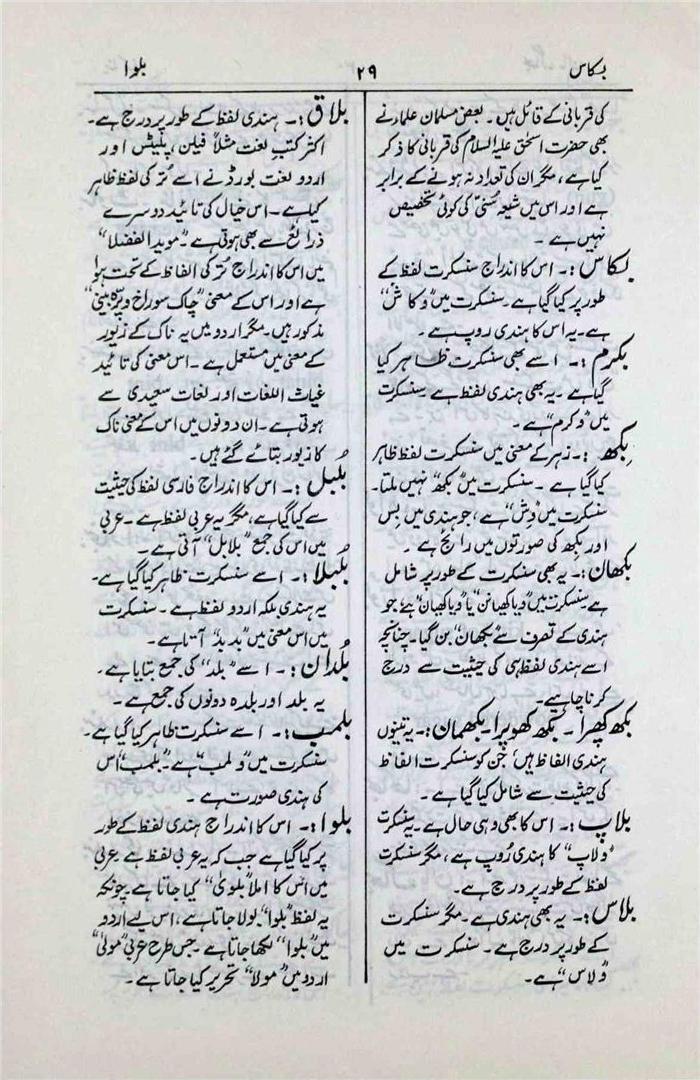 بکاس ۲۹ بلوا
کی قربانی کے قائل ہیں۔ بعض مسلمان علماء نے
بھی حضرت اسحٰق علیہ السلام کی قربانی کا ذکر
کیا ہے، مگر ان کی تعداد نہ ہونے کے برابر
ہے اور اس میں شیعہ سُنّی کی کوئی تخصیص
نہیں ہے۔
بکاس :۔ اس کا اندراج سنسکرت لفظ کے
طور پر کیا گیا ہے۔ سنسکرت میں "وکاش"
ہے۔ یہ اس کا ہندی روپ ہے۔
بکرم :۔ اسے بھی سنسکرت ظاہر کیا
گیا ہے۔ یہ بھی ہندی لفظ ہے۔ سنسکرت
میں "وکرم" ہے۔
بِکھ :۔ زہر کے معنی میں سنسکرت لفظ ظاہر
کیا گیا ہے۔ سنسکرت میں "بکھ" نہیں ملتا۔
سنسکرت میں "وِش" ہے، جو ہندی میں بس
اور بکھ کی صورتوں میں رائج ہے۔
بکھان :۔ یہ بھی سنسکرت کے طور پر شامل
ہے سنسکرت میں "ویاکھیانن" یا "ویاکھیان" ہے، جو
ہندی کے تصرف سے "بکھان" بن گیا۔ چنانچہ
اسے ہندی لفظ ہی کی حیثیت سے درج
کرنا چاہیے۔
بکھ کھپرا۔ بکھ کھوپرا۔ بکھمان :۔ یہ تینوں
ہندی الفاظ ہیں، جن کو سنسکرت الفاظ
کی حیثیت سے شامل کیا گیا ہے۔
بلاپ :۔ اس کا بھی وہی حال ہے۔ یہ سنسکرت
"وِلاپ" کا ہندی رُوپ ہے، مگر سنسکرت
لفظ کے طور پر درج ہے۔
بلاس :۔ یہ بھی ہندی ہے۔ مگر سنسکرت
کے طور پر درج ہے۔ سنسکرت میں
"وِلاس" ہے۔
بلاق :۔ ہندی لفظ کے طور پر درج ہے۔
اکثر کتبِ لغت مثلاً فیلن، پلیٹس اور
اردو لغت بورڈ نے اسے تُرکی لفظ ظاہر
کیا ہے۔ اس خیال کی تائید دوسرے
ذرائع سے بھی ہوتی ہے۔ "موید الفضلا"
میں اس کا اندراج تُرکی الفاظ کے تحت ہوا
ہے اور اس کے معنی "چاک سوراخ و پرّہ بینی"
مذکور ہیں۔ مگر اردو میں یہ ناک کے زیور
کے معنی میں مستعمل ہے۔ اس معنی کی تائید
غیاث اللغات اور لغات سعیدی سے
ہوتی ہے۔ ان دونوں میں اس کے معنی ناک
کا زیور بتائے گئے ہیں۔
بُلبُل :۔ اس کا اندراج فارسی لفظ کی حیثیت
سے کیا گیا ہے، مگر یہ عربی لفظ ہے۔ عربی
میں اس کی جمع "بلابل" آتی ہے۔
بُلبُلا :۔ اسے سنسکرت ظاہر کیا گیا ہے۔
یہ ہندی بلکہ اردو لفظ ہے۔ سنسکرت
میں اس معنی میں "بدبد" آتا ہے۔
بُلدان :۔ اسے "بلد" کی جمع بتایا ہے۔
یہ بلد اور بلدہ دونوں کی جمع ہے۔
بلمب :۔ اسے سنسکرت ظاہر کیا گیا ہے۔
سنسکرت میں "ولمب" ہے۔ "بلمب" اس
کی ہندی صورت ہے۔
بلوا :۔ اس کا اندراج ہندی لفظ کے طور
پر کیا گیا ہے جب کہ یہ عربی لفظ ہے۔ عربی
میں اس کا املا "بلویٰ" کیا جاتا ہے۔ چونکہ
یہ لفظ "بلوا" بولا جاتا ہے، اس لیے اردو
میں "بلوا" لکھا جاتا ہے۔ جس طرح عربی "مولیٰ"
اردو میں "مولا" تحریر کیا جاتا ہے۔